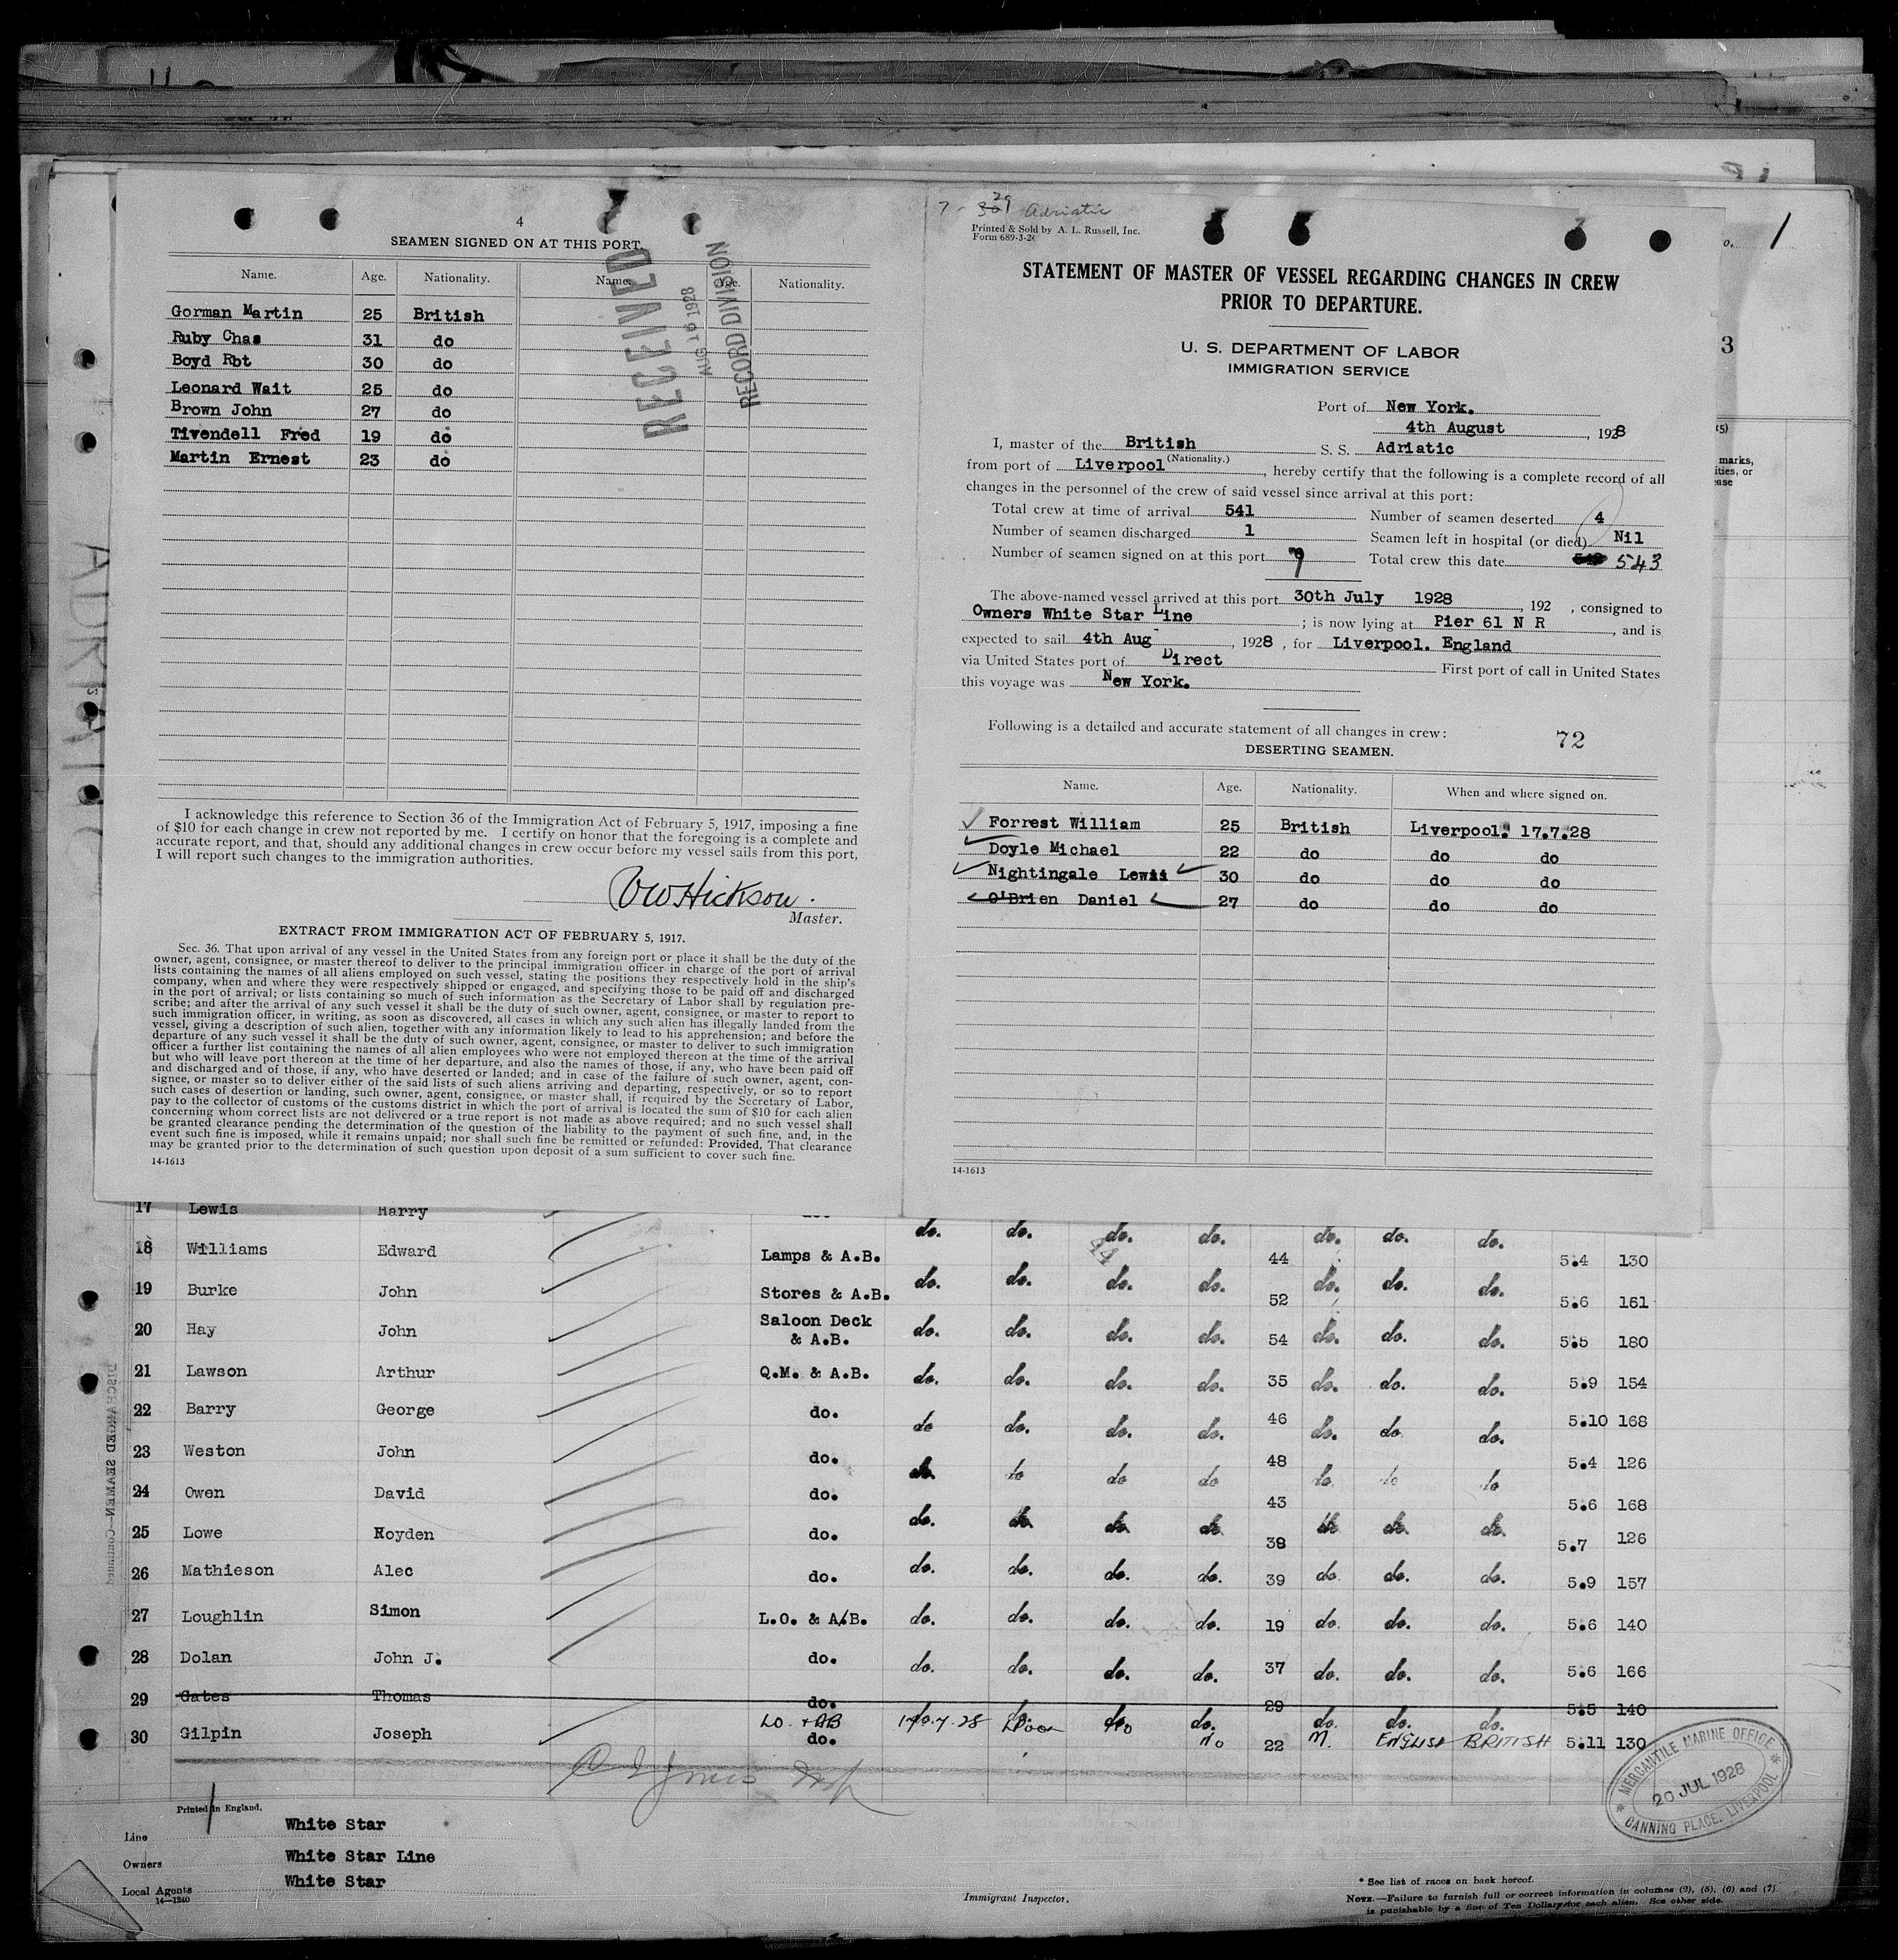 4
SEAMEN SIGNED ON AT THIS PORT.
Name. Age. Nationality. Name. Age. Nationality.
Gorman Martin 25 British
Ruby Chas 31 do
Boyd Rbt 30 do
Leonard Wait 25 do
Brown John 27 do
Tivendell Fred 19 do
Martin Ernest 23 do
RECEIVED
AUG 10 1928
RECORD DIVISION
I acknowledge this reference to Section 36 of the Immigration Act of February 5, 1917, imposing a fine
of $10 for each change in crew not reported by me. I certify on honor that the foregoing is a complete and
accurate report, and that, should any additional changes in crew occur before my vessel sails from this port,
I will report such changes to the immigration authorities.
Hickson.
Master.
EXTRACT FROM IMMIGRATION ACT OF FEBRUARY 5, 1917.
Sec. 36. That upon arrival of any vessel in the United States from any foreign port or place it shall be the duty of the
owner, agent, consignee, or master thereof to deliver to the principal immigration officer in charge of the port of arrival
lists containing the names of all aliens employed on such vessel, stating the positions they respectively hold in the ship's
company, when and where they were respectively shipped or engaged, and specifying those to be paid off and discharged
in the port of arrival; or lists containing so much of such information as the Secretary of Labor shall by regulation pre-
scribe; and after the arrival of any such vessel it shall be the duty of such owner, agent, consignee, or master to report to
such immigration officer, in writing, as soon as discovered, all cases in which any such alien has illegally landed from the
vessel, giving a description of such alien, together with any information likely to lead to his apprehension; and before the
departure of any such vessel it shall be the duty of such owner, agent, consignee, or master to deliver to such immigration
officer a further list containing the names of all alien employees who were not employed thereon at the time of the arrival
but who will leave port thereon at the time of her departure, and also the names of those, if any, who have been paid off
and discharged and of those, if any, who have deserted or landed; and in case of the failure of such owner, agent, con-
signee, or master so to deliver either of the said lists of such aliens arriving and departing, respectively, or so to report
such cases of desertion or landing, such owner, agent, consignee, or master shall, if required by the Secretary of Labor,
pay to the collector of customs of the customs district in which the port of arrival is located the sum of $10 for each alien
concerning whom correct lists are not delivered or a true report is not made as above required; and no such vessel shall
be granted clearance pending the determination of the question of the liability to the payment of such fine, and, in the
event such fine is imposed, while it remains unpaid; nor shall such fine be remitted or refunded: Provided, That clearance
may be granted prior to the determination of such question upon deposit of a sum sufficient to cover such fine.
14-1613
7 - 30 29 Adriatic
Printed & Sold by A. L. Russell, Inc.
Form 689-3-24
STATEMENT OF MASTER OF VESSEL REGARDING CHANGES IN CREW
PRIOR TO DEPARTURE.
U. S. DEPARTMENT OF LABOR
IMMIGRATION SERVICE
Port of New York.
4th August, 1928
I, master of the British S. S. Adriatic
(Nationality.)
from port of Liverpool, hereby certify that the following is a complete record of all
changes in the personnel of the crew of said vessel since arrival at this port:
Total crew at time of arrival 541 Number of seamen deserted 4
Number of seamen discharged 1 Seamen left in hospital (or died) Nil
Number of seamen signed on at this port 7 Total crew this date 543
The above-named vessel arrived at this port 30th July 1928, 192 , consigned to
Owners White Star Line; is now lying at Pier 61 N R, and is
expected to sail 4th Aug, 1928, for Liverpool. England
via United States port of Direct First port of call in United States
this voyage was New York.
Following is a detailed and accurate statement of all changes in crew:
72
DESERTING SEAMEN.
Name. Age. Nationality. When and where signed on.
Forrest William 25 British Liverpool. 17.7.28
Doyle Michael 22 do do do
Nightingale Lewis 30 do do do
O'Brien Daniel 27 do do do
14-1613
o. 1
3
(5)
marks,
ities, or
ease
ADRIATIC
DISCHARGED SEAMEN—Continued
17 Lewis Harry do. do. do. do. do. do. do. do.
18 Williams Edward Lamps & A.B. do. do. do. do. 44 do. do. do. 5.4 130
44
19 Burke John Stores & A.B. do. do. do. do. 52 do. do. do. 5.6 161
20 Hay John Saloon Deck
& A.B. do. do. do. do. 54 do. do. do. 5.5 180
21 Lawson Arthur Q.M. & A.B. do. do. do. do. 35 do. do. do. 5.9 154
22 Barry George do. do do. do. do. 46 do. do. do. 5.10 168
23 Weston John do. do. do do do 48 do. do do 5.4 126
24 Owen David do. do. do. do. do. 43 do. do. do. 5.6 168
25 Lowe Royden do. 38 5.7 126
26 Mathieson Alec do. do. do. do. do. 39 do. do. do. 5.9 157
27 Loughlin Simon L.O. & A.B. do. do. do. do. 19 do. do. do. 5.6 140
28 Dolan John J. do. do. do. do. do. 37 do. do. do. 5.6 166
29 Gates Thomas do. do. do. do. do. 29 do. do. do. 5.5 140
LO. & AB 17.7.28 L'Pool No No M. ENGLISH BRITISH
30 Gilpin Joseph do. 22 5.11 130
MERCANTILE MARINE OFFICE
20 JUL 1928
CANNING PLACE, LIVERPOOL
Printed in England.
Line White Star
Owners White Star Line
Local Agents White Star
14—1240
Immigrant Inspector.
* See list of races on back hereof.
NOTE.—Failure to furnish full or correct information in columns (3), (5), (6) and (7)
is punishable by a fine of Ten Dollars for each alien. See other side.